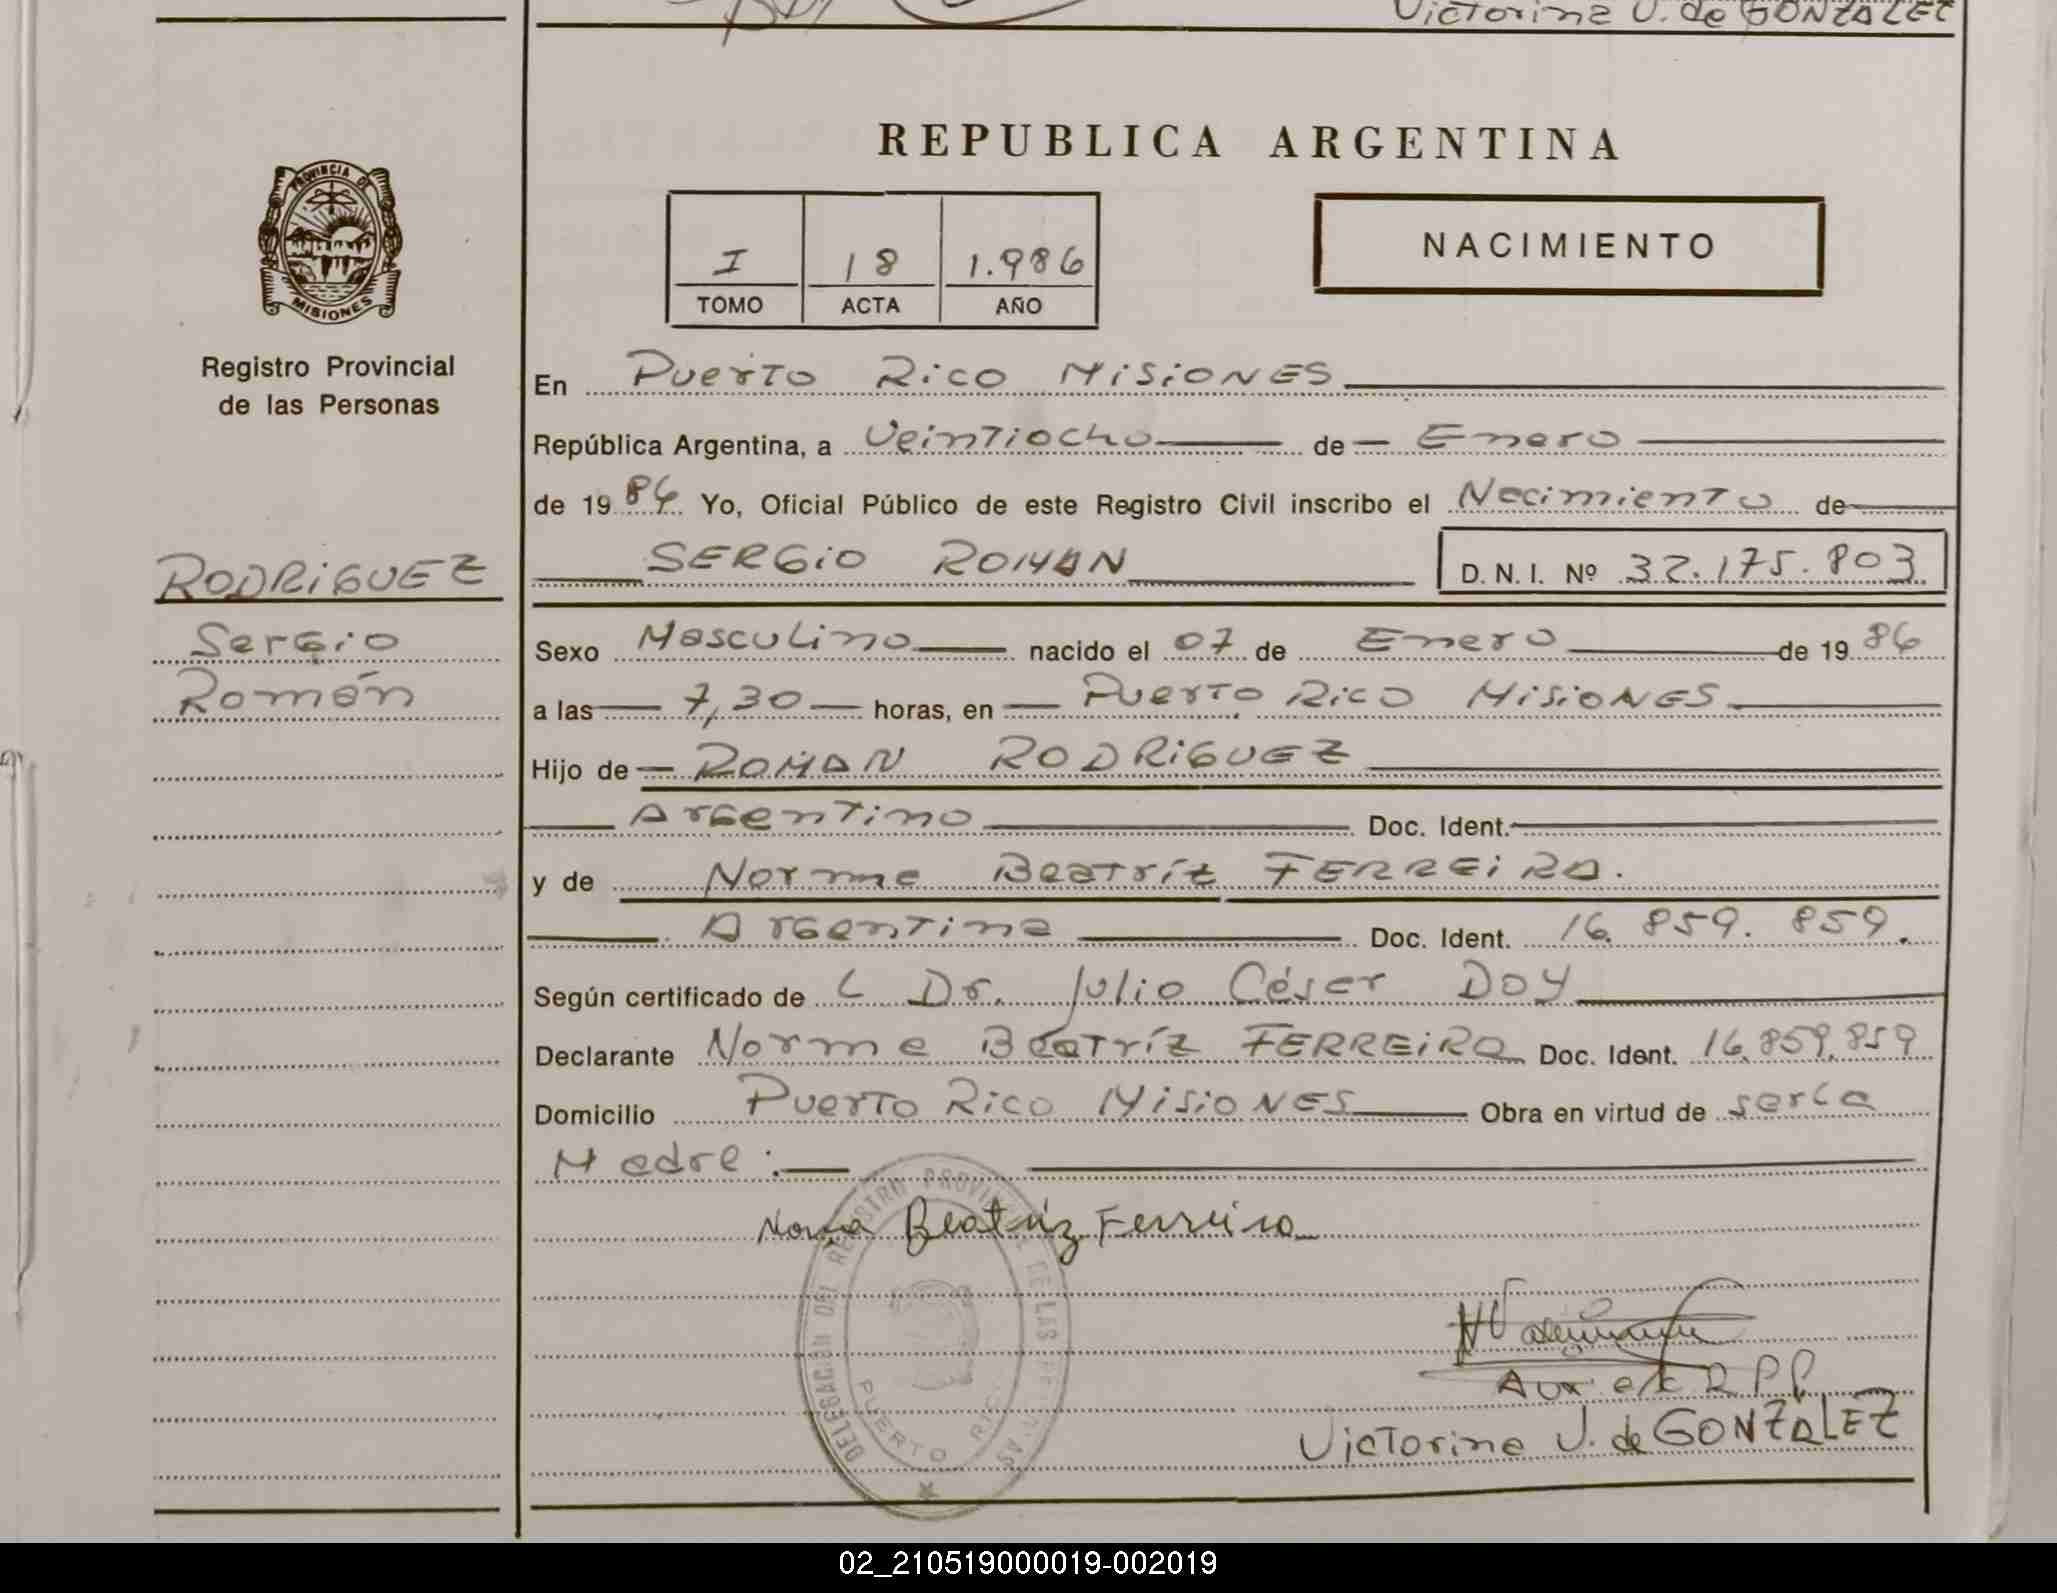 Victorina U. de GONZALEZ
REPUBLICA ARGENTINA
PROVINCIA DE
MISIONES
Registro Provincial
de las Personas
I 18 1.986
TOMO ACTA AÑO
NACIMIENTO
En Puerto Rico MISIONES
República Argentina, a Veintiocho de Enero
de 1986 Yo, Oficial Público de este Registro Civil inscribo el Nacimiento de
RODRIGUEZ
SERGIO ROMAN D.N.I. Nº 32.175.803
Sergio
Román
Sexo Masculino nacido el 07 de Enero de 1986
a las 7,30 horas, en Puerto Rico MISIONES
Hijo de ROMAN RODRIGUEZ
Argentino Doc. Ident.
y de Norma Beatríz FERREIRA.
Argentina Doc. Ident. 16.859.859.
Según certificado de L Dr. Julio César DOY
Declarante Norma Beatríz FERREIRA Doc. Ident. 16.859.859
Domicilio Puerto Rico MISIONES Obra en virtud de ser la
Madre.
Norma Beatriz Ferreira
DELEGACION DEL REGISTRO PROVINCIAL DE LAS PERSONAS
PUERTO RICO
Aux. e/c R P P
Victorina U. de GONZALEZ
02_210519000019-002019